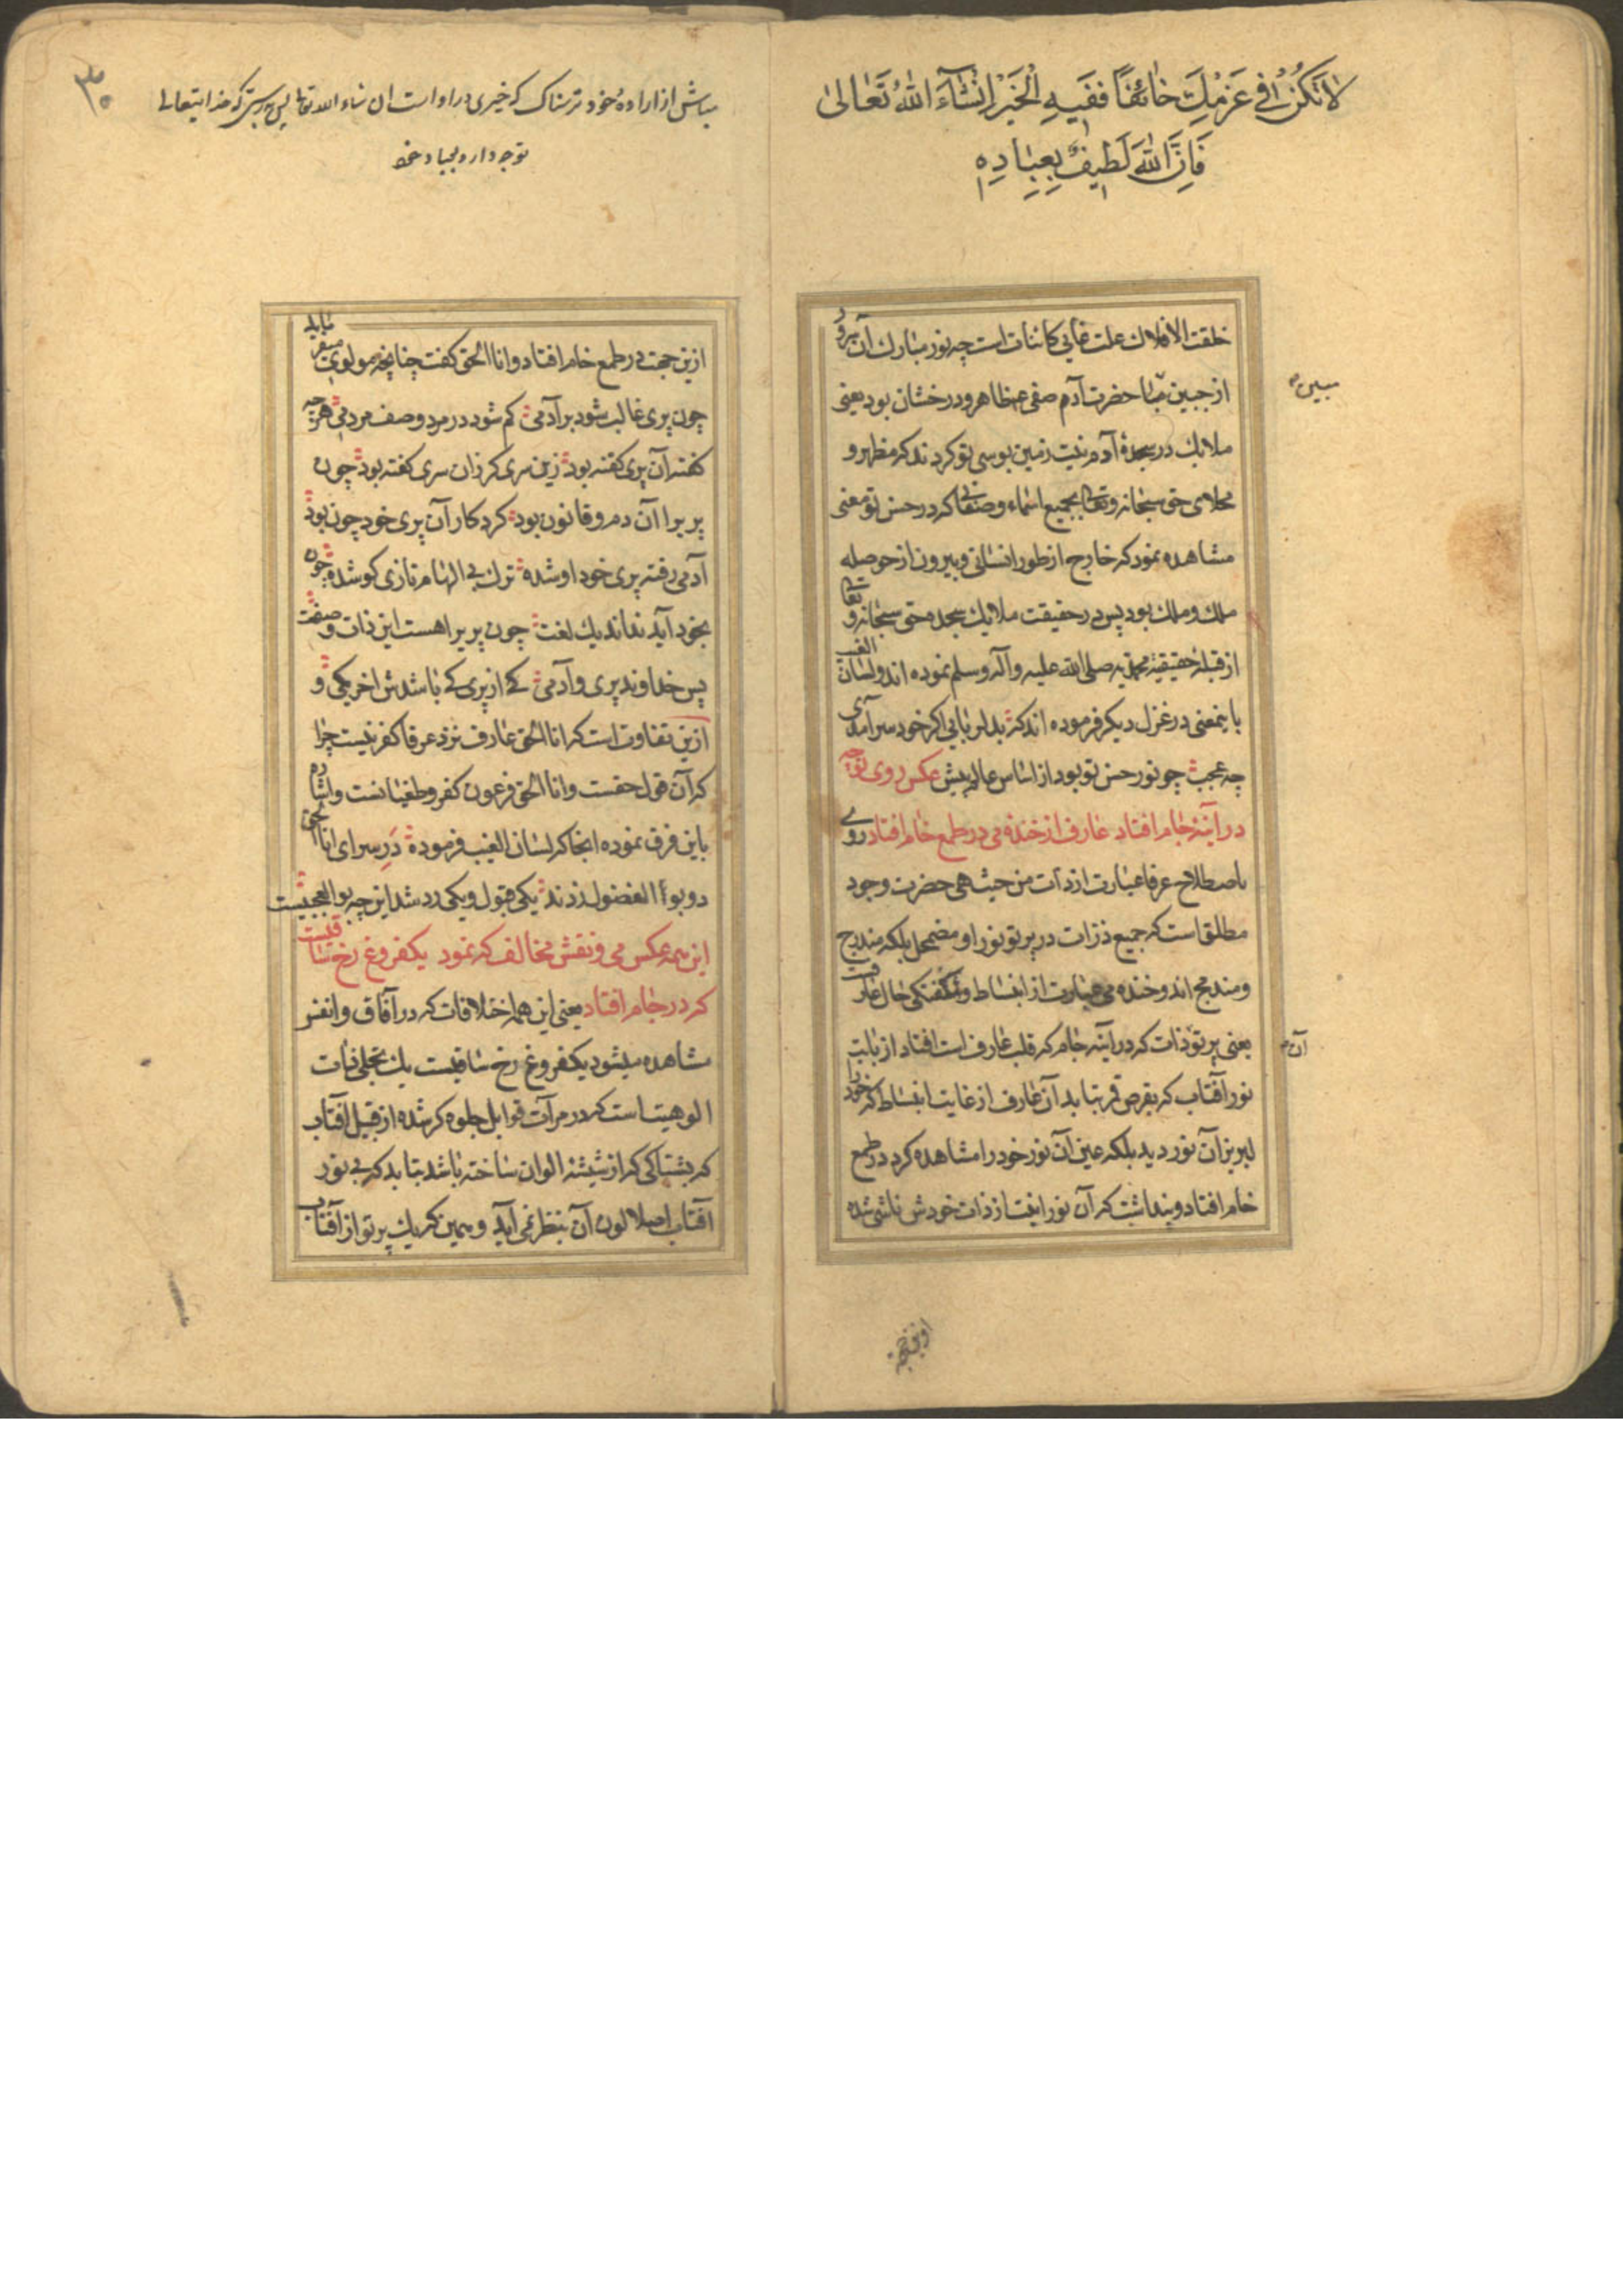 لا تَكُنْ فی عَزْمِكَ خائفاً ففیهِ الْخَیْرُ اِنْشآءَ اللهُ تَعالیٰ
فَاِنَّ اللهَ لَطیفٌ بِعِبادِهِ
خلقت الافلاك علت غایی کاینات است چه نور مبارك آن سرور
مبین
از جبین حضرت آدم صفی ع ظاهر و درخشان بود یعنی
ملایك در سجدهٔ آدم نیت زمین بوسی تو کردند که مظهر و
مجلای حق سبحانه و تعالی بجمیع اسماء و صفاتی که در حسن تو معنی
مشاهده نمود که خارج از طور انسانی و بیرون از حوصله
ملك و ملك بود پس در حقیقت ملایك سجده حق سبحانه و تعالی
از قبله حقیقة محمدیه صلی الله علیه و آله و سلم نموده اند و لسان الغیب
باینمعنی در غزل دیکر فرموده اند که بدلربایی اکر خود سرآمدی
چه عجب چو نور حسن تو بود از اساس عالم پیش عکس روی تو چه
در آینهٔ جام افتاد عارف از خندهٔ می در طمع خام افتاد روی
باصطلاح عرفا عبارت از ذات من حیث هی حضرت وجود
مطلق است که جمیع ذرات در پرتو نور او مضمحل بلکه مندرج
و مندمج اند و خنده می عبارت از انبساط و شکفتکی حال عارفست
آن
یعنی پرتو ذات که در آینه جام که قلب عارف است افتاد از بابت
نور آفتاب که بقرص قمر تابد آن عارف از غایت انبساط که خود را
لبریز آن نور دید بلکه عین آن نور خود را مشاهده کرد در طمع
خام افتاد و پنداشت که آن نور از ذات خودش ناشی شده
۳۰
مباش از ارادهٔ خود ترسناك که خیری در او است ان شاء الله تعالی پس بدرستی که خدایتعالی
توجه دارد بعباد خود
ازین جهت در طمع خام افتاد و انا الحق کفت چنانچه مولوی میفرماید
چون پری غالب شود بر آدمی کم شود در مرد وصف مردمی هرچه
کفته آن پری کفته بود زین سری کر زان سری کفته بود چون
پری را آن دم و قانون بود کردکار آن پری خود چون بود
آدمی رفته پری خود او شده ترك بی الهام تازی کو شده چون
بخود آید نداند یك لغت چون پری را هست این ذات و صفت
پس خداوند پری و آدمی کی از پری کی باشدش آخر کمی و
ازین تفاوت است که انا الحق عارف نزد عرفا کفر نیست چرا
که آن قول حقست و انا الحق فرعون کفر و طغیانست و اشاره
باین فرق نموده انجا که لسان الغیب فرموده در سرای انا الحق
دو بو الفضول زدند یکی قبول و یکی رد شد این چه بوالعجبیست
این همه عکس می و نقش مخالف که نمود یکفروغ رخ ساقیست
که در جام افتاد یعنی این همه اختلافات که در آفاق و انفس
مشاهده میشود یکفروغ رخ ساقیست یك تجلی ذات
الوهیت است که در مرآت قوابل جلوه کر شده از قبیل آفتاب
که بشباکی که از شیشه الوان ساخته باشد بتابد که بی نور
آفتاب اصلا لون آن بنظر نمی آید و همین که یك پرتو از آفتاب